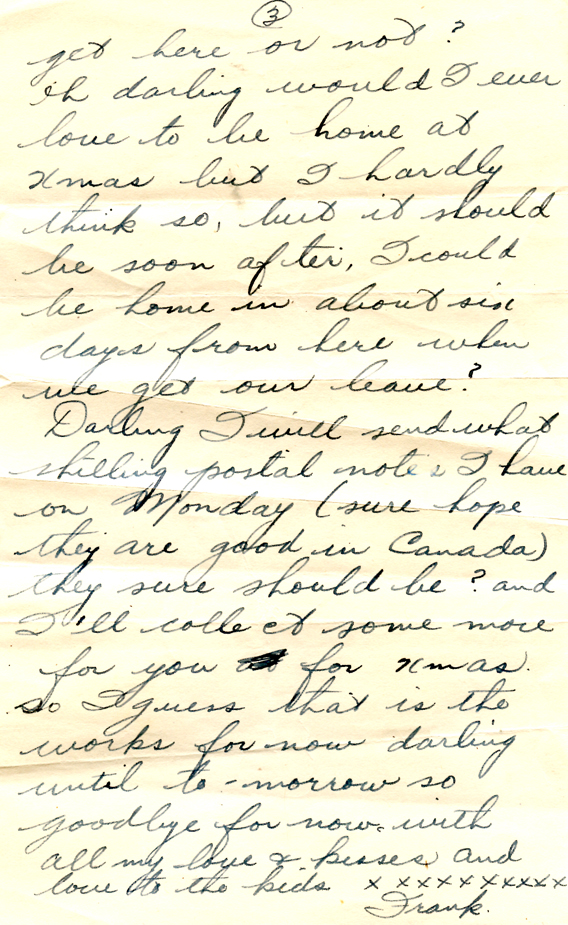 3
get here or not?
eh darling would I ever
love to be home at
xmas but I hardly
think so, but it should
be soon after, I could
be home in about six
days from here when
we get our leave?
Darling I will send what
shilling postal notes I have
on Monday (sure hope
they are good in Canada)
they sure should be? and
I'll collect some more
for you for xmas.
so I guess that is the
works for now darling
until to-morrow so
goodbye for now. with
all my love & kisses and
love to the kids x xxxxxxxxx
Frank.